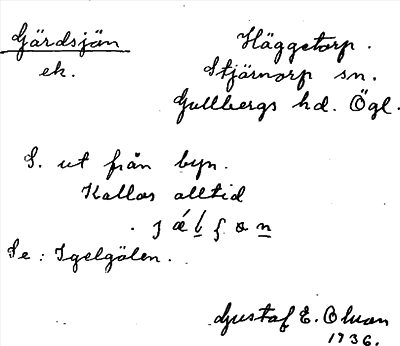 Gärdsjän Häggetorp.
ek. Stjärnorp sn.
Gullbergs hd. Ögl.
S. ut från byn.
Kallas alltid
Se: Igelgölen.
Gustaf E. Olsson
1936.